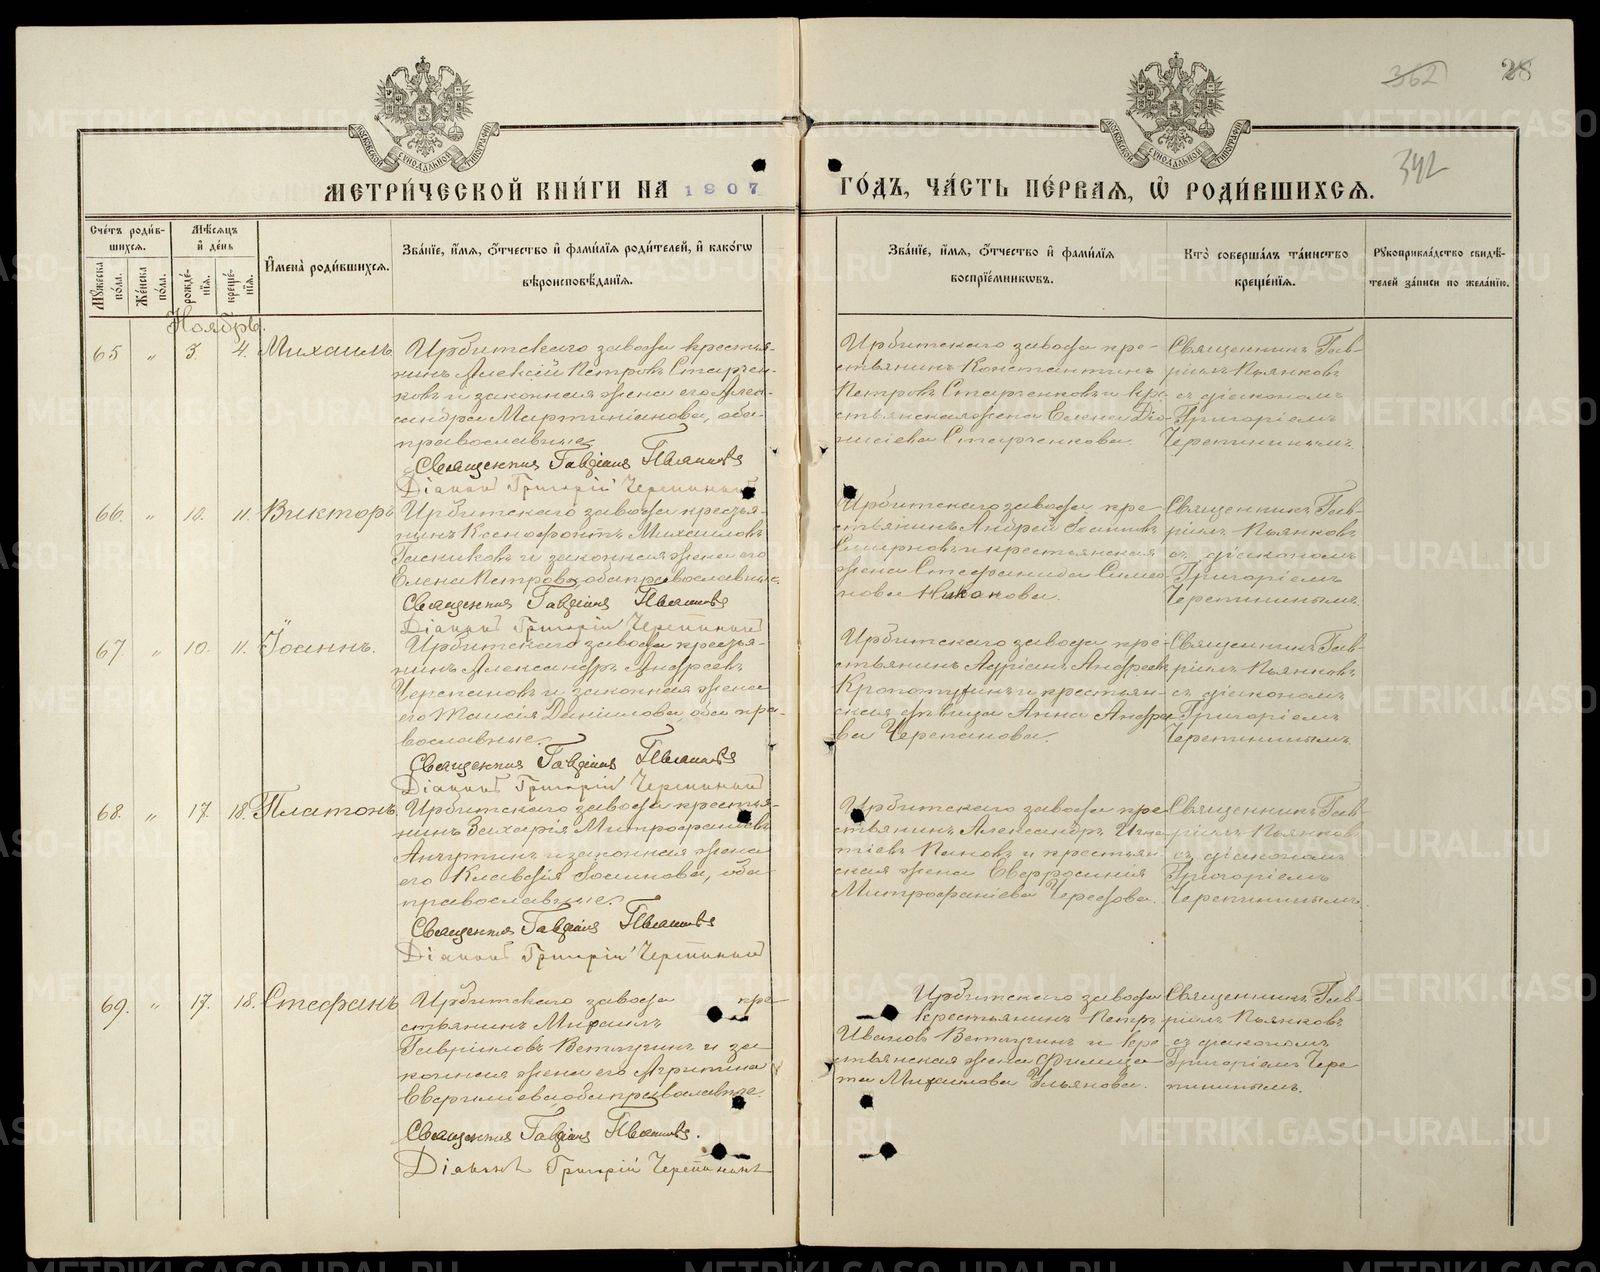 362
28
342
МОСКОВСКОЙ СѴНОДАЛЬНОЙ ТИПОГРАФІИ
МОСКОВСКОЙ СѴНОДАЛЬНОЙ ТИПОГРАФІИ
МЕТРИ́ЧЕСКОЙ КНИ́ГИ НА 1907 ГО́ДЪ, ЧА́СТЬ ПЕ́РВАѦ, Ѡ҆ РОДИ́ВШИХСѦ.
Сче́тъ роди́в-
шихсѧ.
Мꙋ́жеска по́ла.
Же́нска по́ла.
Мѣ́сѧцъ
и҆ де́нь
рожде́-
нїѧ.
креще́-
нїѧ.
И҆мена̀ роди́вшихсѧ.
Зва́нїе, и҆́мѧ, ѻ҆́тчество и҆ фами́лїѧ роди́телей, и҆ како́гѡ
вѣроисповѣ́данїѧ.
Зва́нїе, и҆́мѧ, ѻ҆́тчество и҆ фами́лїѧ
воспрїе́мникѡвъ.
Кто̀ соверша́лъ та́инство
креще́нїѧ.
Рꙋкоприкла́дство свидѣ́-
телей за́писи по жела́нїю.
Ноябрь.
65 „ 3. 4. Михаилъ
Ирбитскаго завода крестья-
нинъ Алексій Петровъ Старчен-
ковъ и законная жена его Алек-
сандра Мартиніанова, оба
православные
Священникъ Гавріилъ Пьянковъ
Діаконъ Григорій Черепининъ
Ирбитскаго завода кре-
стьянинъ Константинъ
Петровъ Старченковъ и кре-
стьянская жена Елена Діо-
нисіева Старченкова.
Священникъ Гав-
ріилъ Пьянковъ
съ діакономъ
Григоріемъ
Черепининымъ.
66. „ 10. 11. Викторъ
Ирбитскаго завода крестья-
нинъ Ксенофонтъ Михаиловъ
и законная жена его
Елена Петрова, оба православные.
Священникъ Гавріилъ Пьянковъ
Діаконъ Григорій Черепининъ
Ирбитскаго завода кре-
стьянинъ Андрей Іоанновъ
Смирновъ и крестьянская
жена Стефанида Симео-
нова Никонова.
Священникъ Гав-
ріилъ Пьянковъ
съ діакономъ
Григоріемъ
Черепининымъ.
67. „ 10. 11. Іоаннъ.
Ирбитскаго завода крестья-
нинъ Александръ Андреевъ
Черепановъ и законная жена
его Таисія Даніилова, оба пра-
вославные.
Священникъ Гавріилъ Пьянковъ
Діаконъ Григорій Черепининъ
Ирбитскаго завода кре-
стьянинъ Адріанъ Андреевъ
Кропотухинъ и крестьян-
ская дѣвица Анна Андрее-
ва Черепанова.
Священникъ Гав-
ріилъ Пьянковъ
съ діакономъ
Григоріемъ
Черепининымъ.
68. „ 17. 18. Платонъ.
Ирбитскаго завода крестья-
нинъ Захарія Митрофаніевъ
Анчутинъ и законная жена
его Клавдія Іосифова, оба
православные.
Священникъ Гавріилъ Пьянковъ
Діаконъ Григорій Черепининъ
Ирбитскаго завода кре-
стьянинъ Александръ Игна-
тіевъ Пановъ и крестьян-
ская жена Евфросинія
Митрофаніева
Священникъ Гав-
ріилъ Пьянковъ
съ діакономъ
Григоріемъ
Черепининымъ.
69. „ 17. 18. Стефанъ
Ирбитскаго завода кре-
стьянинъ Михаилъ
Гавріиловъ Ветлугинъ и за-
конная жена его Агрипина
оба православные.
Священникъ Гавріилъ Пьянковъ.
Діаконъ Григорій Черепининъ
Ирбитскаго завода
крестьянинъ Петръ
Ивановъ Ветлугинъ и кре-
стьянская жена Филица-
та Михаилова Ульянова.
Священникъ Гав-
ріилъ Пьянковъ
съ діакономъ
Григоріемъ Чере-
пининымъ.
METRIKI.GASO-URAL.RU